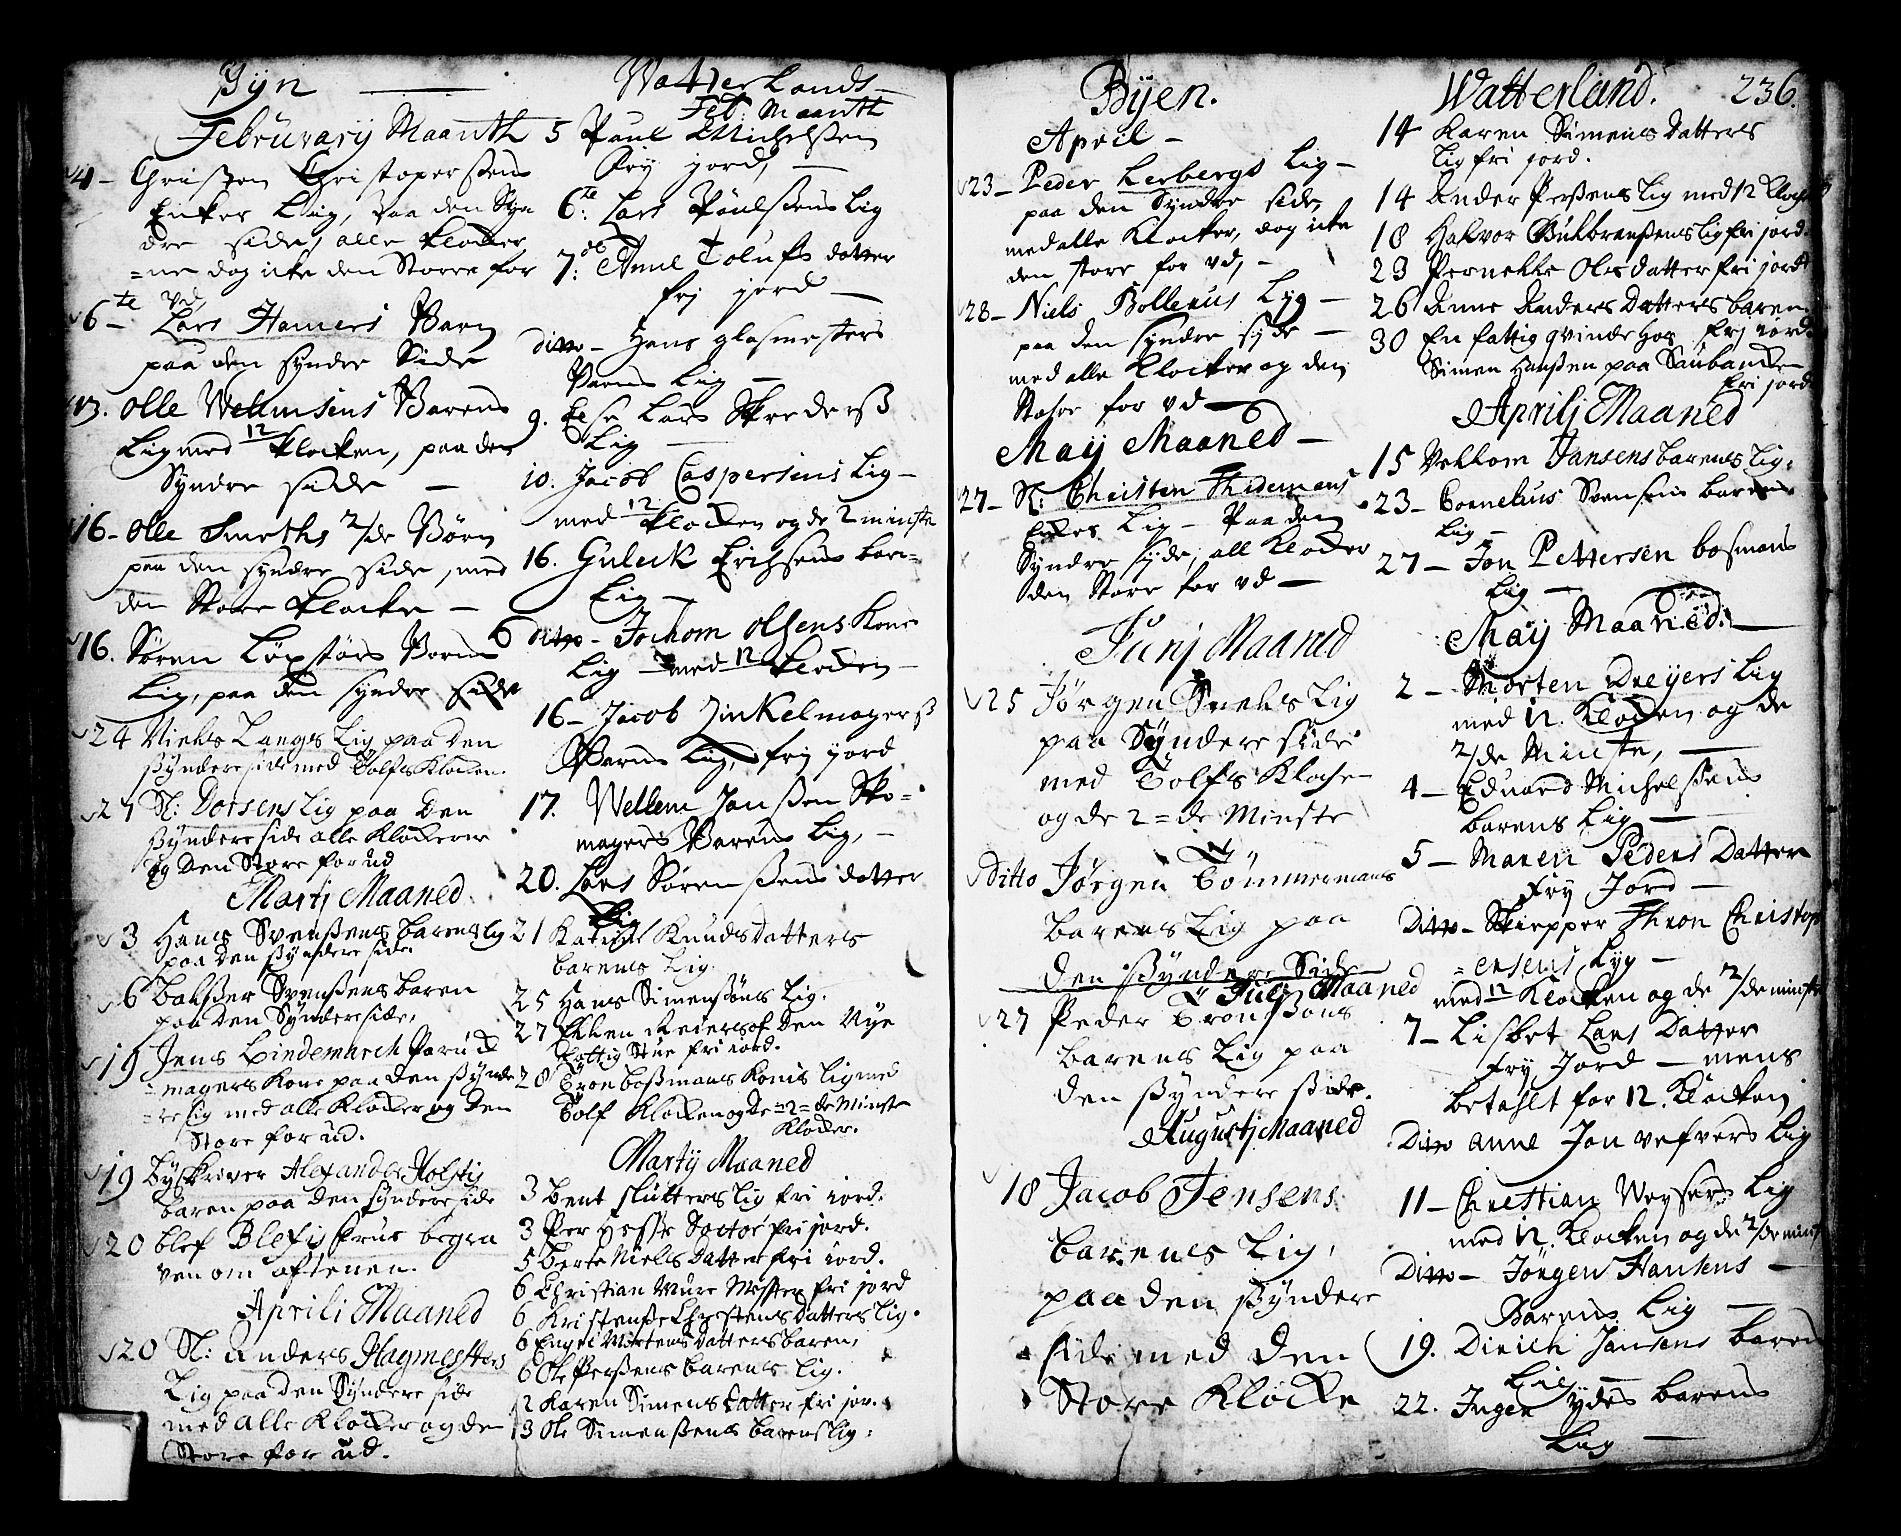 Byn
Februarij Maanth
4 - Christen Christopersens
Enkes Liig, paa den Syn
dre side, alle klocker
=ne dog icke den Store for
ud
6te - Lars Hamers Barn
paa den syndre Side
13. Olle Wellumsens Barens
Lig med 12 klocken, paa den
Syndre side -
16 - Olle Smeths 2/de Børn
paa den syndre side, med
den Store klocke -
16. Søren Løpstørs Barns
Lig, paa den syndre side
24 Niels Langes Lig paa den
Syndere side med Tolfs Klocken.
27 Sl: Dorsens Lig paa den
Syndere side alle Klockerne
og Den Store for ud
Martj Maaned
3 Hans Svensens barens lig
paa den syndere side
6 Balsser Svensens baren
paa Den Syndere side,
19 Jens Lindemarch Paruck
=magers kone paa den synde
=re lig med alle Klocker og Den
Store for ud.
19 byskriver Alexander Holstis
baren paa den syndere side
20 blef Blefis frue begra
ven om aftenen.
Aprili Maaned
20 Sl: Anders Hagmesters
Lig paa den Syndere side
med alle Klocker og den
Store for ud.
Watterlands
Feb: Maanth
5 Paul Michelsen
Fry jord, -
6te: Lars Poulsens Lig
7de: Anne Tolufs datter
frj jord -
ditto - Hans glasmesters
Barns Lig -
9. Else Lars Skreders
Lig -
10. Jacob Caspersens Lig -
med 12 klocken og de 2 minste
16. Guleck Erichsens bare=
Lig -
ditto - Jochom Olsens Kone
Lig - med 12 klocken -
16 - Jacob Zinkelmagers
Barns Lig, frj jord
17. Wellem Jansen Sko=
magers Barens Lig, -
20. Lars Sørensens datter
Lig
21 Karine Knudsdatters
barens Lig.
25 Hans Simensøns Lig.
27 Ellen Reiers of Den Nye
Fattig Stue fri iord.
28 Tron bosmans Konis lig med
Tolf Klocken og De =2= de Minste
Klocker.
Martij Maaned
3 bent slutters lig fri iord.
3 Per Hesse Doctor fri jord.
5 berte Niels Datter fri iord.
6 Christian Mure Mester fri jord
6 Kristense Christens datters lig.
6 Engri Mortens datters baren,
6 Ole Persens barens lig.
12 Karen Simens Datter fri jor.
13 Ole Simensens barens lig:
Byen.
April -
23 - Peder Lerbergs Lig -
paa den Syndre side,
med alle Klocker, dog icke
den store for ud, -
28 - Niels Bollerus Lyg -
paa den syndre syde -
med alle Klocker og den
Stohre for ud -
May Maaned -
27 - Sl: Christen Thidemans
Enkes Lig - Paa den
Syndre syde, all klocker
den Store for ud -
Junj Maaned
25 Jørgen Snels Lig
paa Syndere side
med Tolfs Klocke
og de 2 = de Minste
Ditto Jørgen Tømmermans
barens Lig paa
den syndere Side
Julj Maaned
27 Peder Tronsøns
barens Lig paa
den syndere side.
Augustj Maaned
18 Jacob Jensens
barenes Lig,
paa den syndere
side med den
Store Klocke
Watterland. 236.
14 Karen Simens Datters
Lig fri jord.
14 Ander Persens Lig med 12 Klocken
18 Halvor Gulbransens lig fri jord.
23 Pernelle Olesdatter fri jord
26 Anne Anders Datters baren
frj iord.
30 En fattig qvinde hos
Simen Hansen paa Saubanck
fri jord
Aprilj Maaned
15 Vellom Jansens barens Lig.
23 - Cornelius Svensens barens
Lig -
27 - Jon Pettersen bosmans
Lig -
May Maaned: -
2 - Morten Dreyers Lig
med 12. Klocken og de
2/de Minste, -
4 - Eduard Michelsens
barens Lig -
5 - Maren Peders Datter
Fry Jord -
Ditto - Skiepper Thron Christop
=ensens Lyg -
med 12 Klocken og de 2/de minste
7 - Lisbet Lars Datter
Fry Jord - mens
betahlt for 12. Klocken
Ditto Anne Jon vefvers Lig
11 - Chrestian Weysers Lig
med 12. Klocken og de 2/de minst
Ditto - Jørgen Hansens -
Barens Lig -
19. Dirich Jansens baren
Lig -
22. Inger ydes barens
Lig -